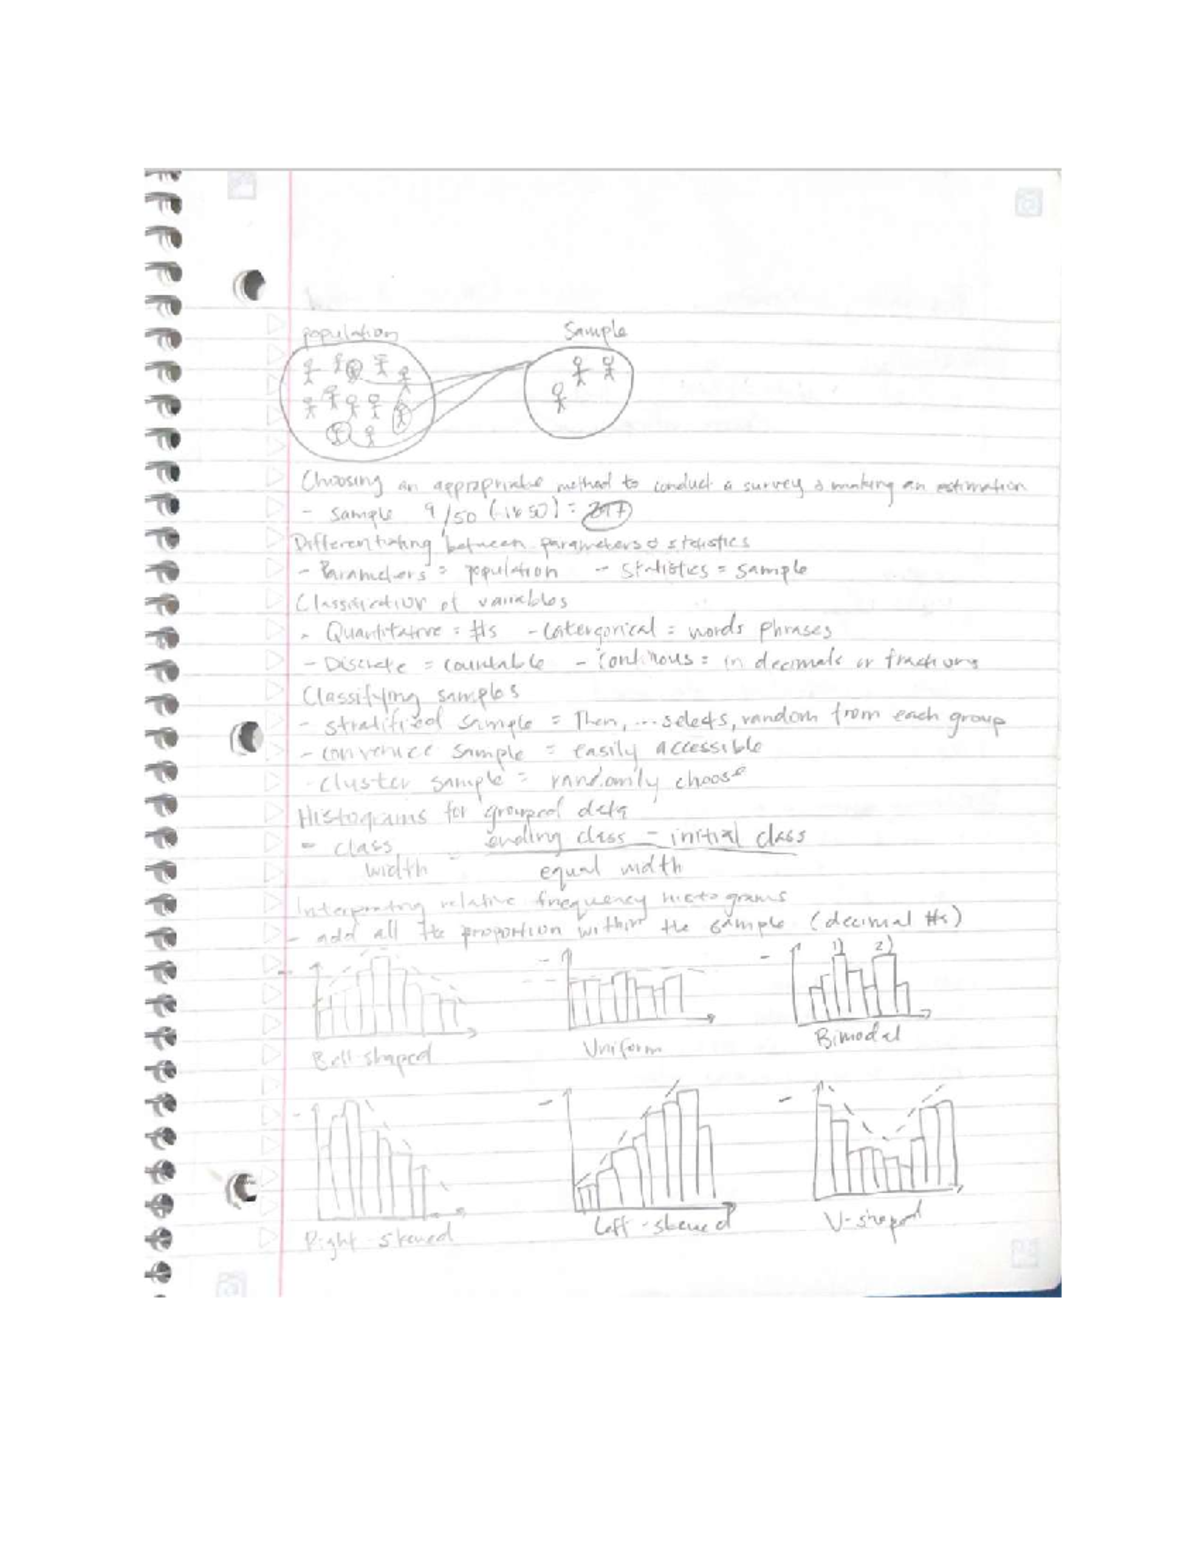 population Sample
Choosing an appropriate method to conduct a survey & making an estimation
- Sample 9/50 (1650) = 297
Differentiating between parameters & statistics
- Parameters = population - statistics = sample
Classification of variables
- Quantitative = #s - Catergorical = words phrases
- Discrete = countable - Continous = in decimals or fractions
Classifying samples
- stratified sample = Then, ... selects, random from each group
- convenice sample = easily accessible
- cluster sample = randomly choose
Histograms for grouped data
- class ending class - initial class
width = equal width
Interpreting relative frequency histograms
- add all the proportion within the sample (decimal #s)
1) 2)
Bell-shaped Uniform Bimodal
Right-skewed Left-skewed V-shaped